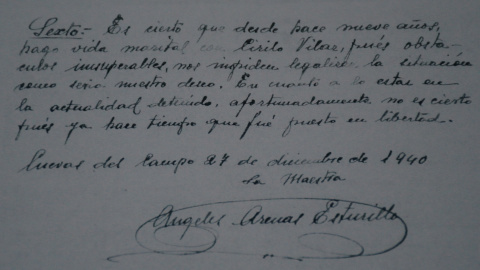 Sexto:- Es cierto que desde hace nueve años,
hago vida marital con Cirilo Vilar, pués obstá-
culos insuperables, nos impiden legalizar la situación
como sería nuestro deseo. En cuanto a lo estar en
la actualidad detenido, afortunadamente no es cierto
pués ya hace tiempo que fué puesto en libertad.
Cuevas del Campo 27 de diciembre de 1940
La Maestra
Angeles Arenas Esturillo